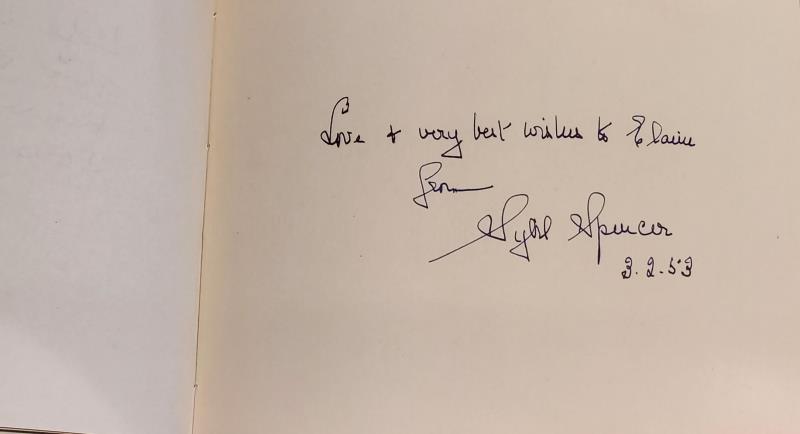 Love + very best wishes to Elaine
from
Sybil Spencer
3.2.53